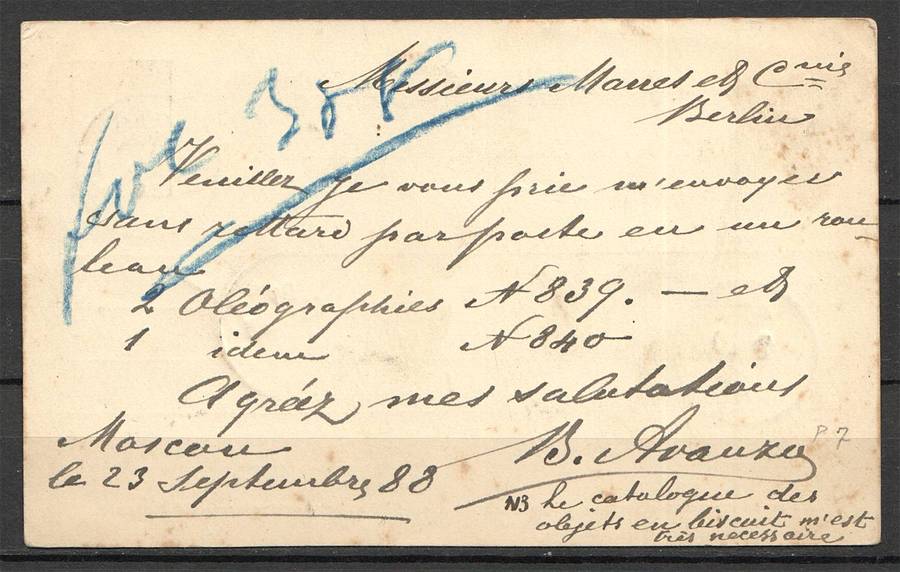 Messieurs Marres et Cnie
Berlin
Veuillez je vous prie m'envoyer
sans rettard par poste en un rou-
leau
2 Oléographies N 839. — et
1 idem N 840
Agréez mes salutations
Moscou
B. Avanzo
P 7
le 23 Septembre 88
NB Le catalogue des
objets en biscuit m'est
très necessaire